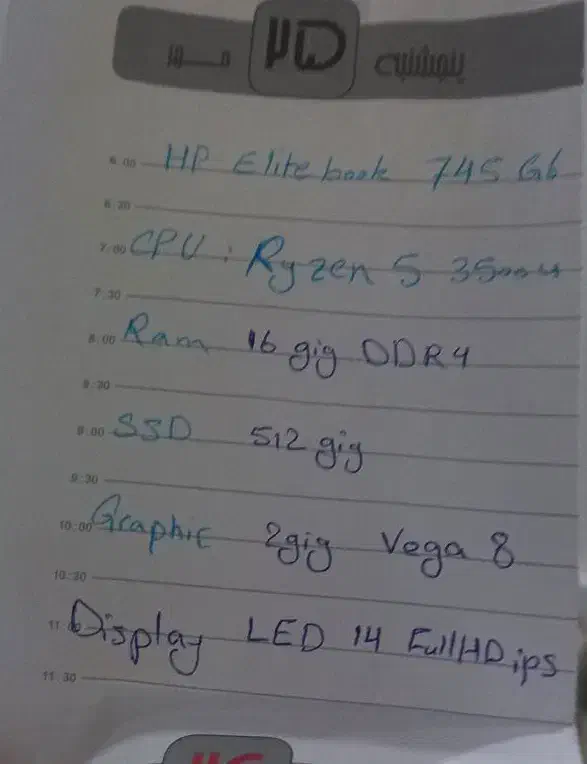 پنجشنبه ۲۵ مهر
6:00 HP Elite book 745 G6
6:30
7:00 CPU : Ryzen 5 3500u
7:30
8:00 Ram 16 gig DDR4
8:30
9:00 SSD 512 gig
9:30
10:00 Graphic 2gig Vega 8
10:30
11 Display LED 14 FullHD ips
11:30